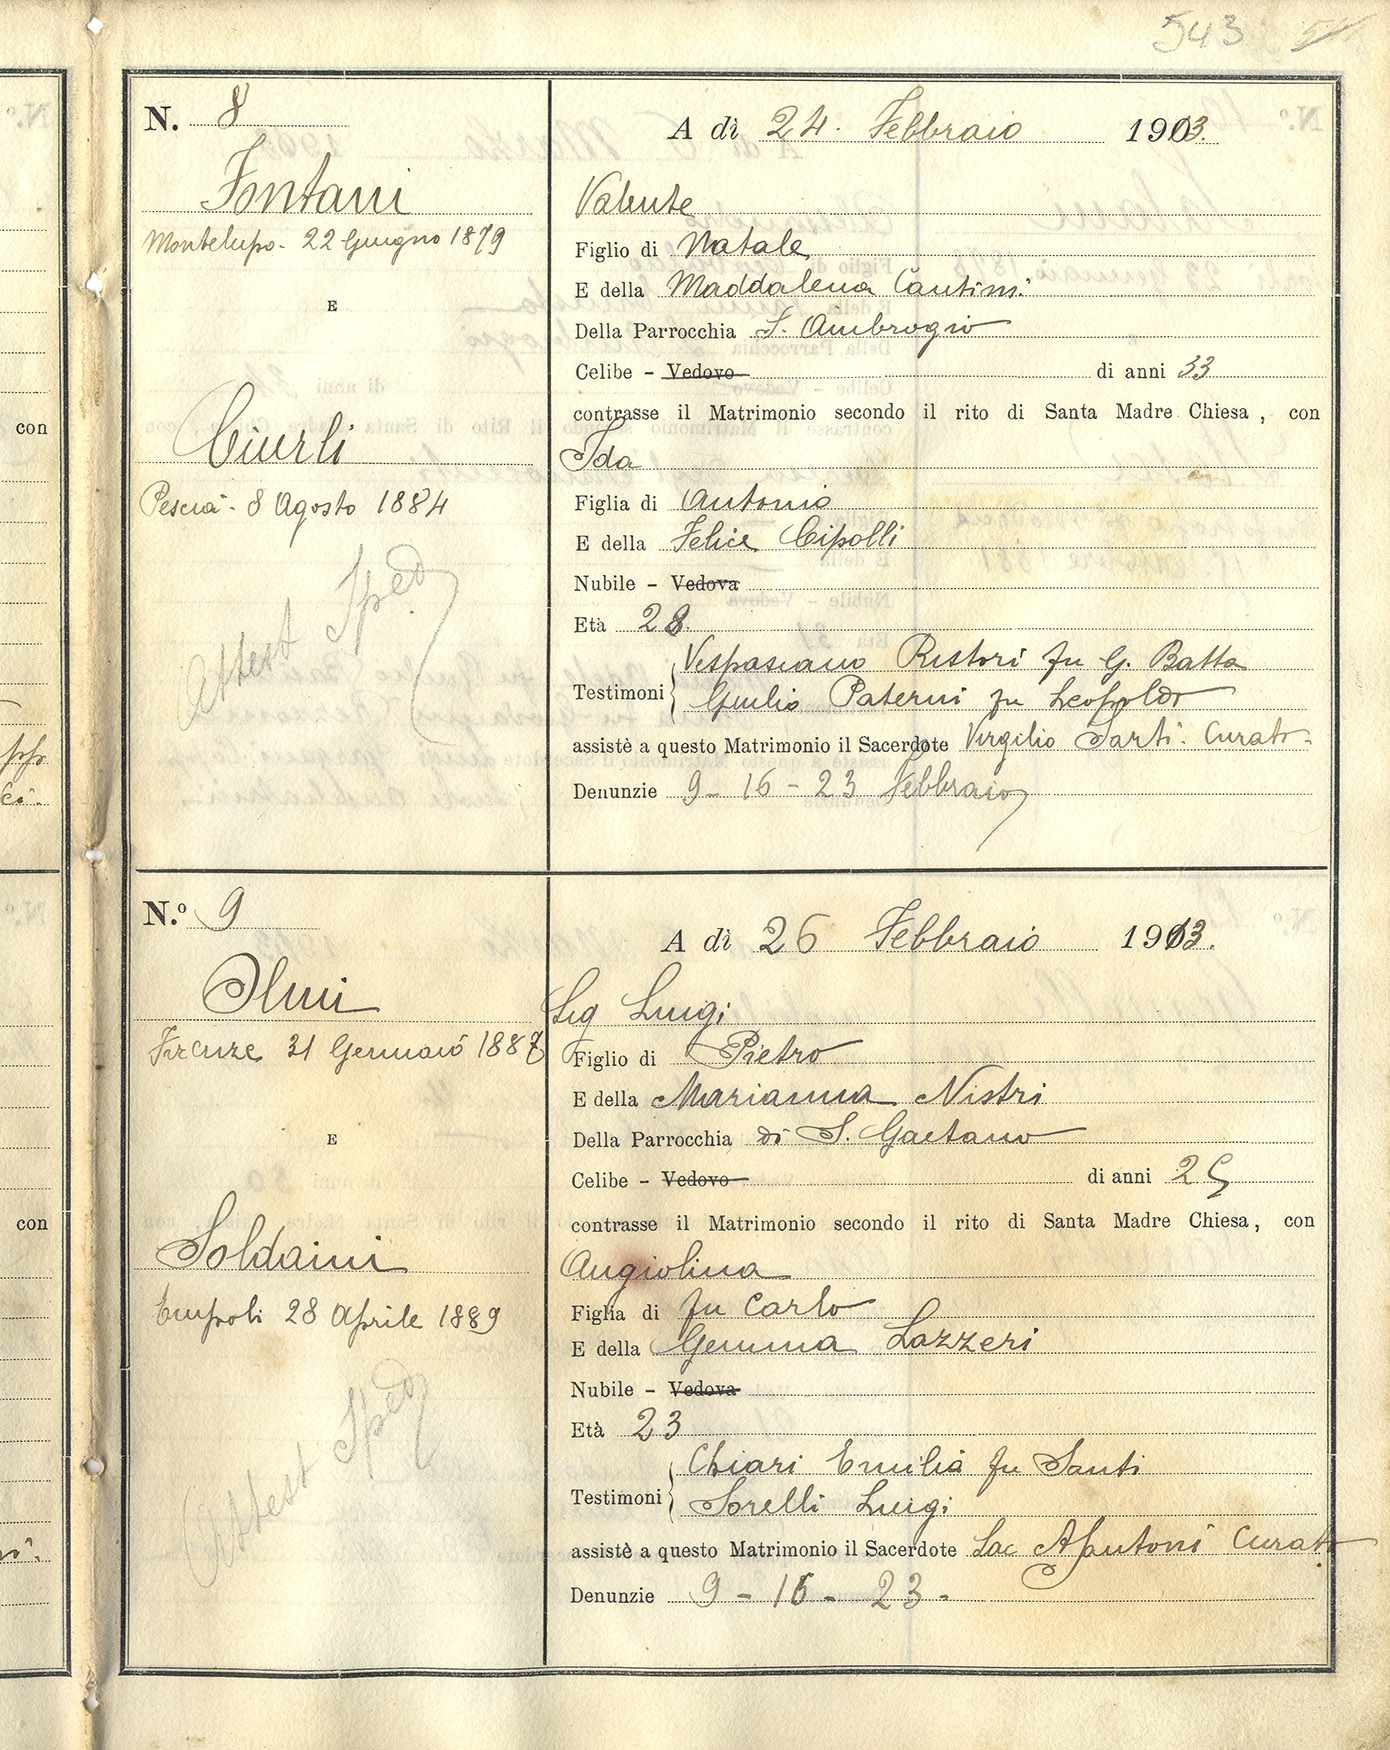 543
N. 8
A dì 24. Febbraio 1913.
Fontani
Montelupo - 22 Giugno 1879
E
Ciurli
Pescia - 8 Agosto 1884
Attest Sped
Valente
Figlio di Natale
E della Maddalena Cantini
Della Parrocchia S. Ambrogio
Celibe - Vedovo di anni 33
contrasse il Matrimonio secondo il rito di Santa Madre Chiesa, con
Ida
Figlia di Antonio
E della Felice Cipolli
Nubile - Vedova
Età 28
Testimoni Vespasiano Ristori fu G. Batta
Giulio Paterni fu Leopoldo
assistè a questo Matrimonio il Sacerdote Virgilio Sarti. Curato.
Denunzie 9 - 16 - 23 Febbraio
N.º 9
A dì 26 Febbraio 1913.
Olmi
Firenze 31 Gennaio 1887
E
Soldaini
Empoli 28 Aprile 1889
Attest Sped
Sig Luigi
Figlio di Pietro
E della Marianna Nistri
Della Parrocchia di S. Gaetano
Celibe - Vedovo di anni 25
contrasse il Matrimonio secondo il rito di Santa Madre Chiesa, con
Angiolina
Figlia di fu Carlo
E della Gemma Lazzeri
Nubile - Vedova
Età 23
Testimoni Chiari Emilia fu Santi
Sorelli Luigi
assistè a questo Matrimonio il Sacerdote Sac Curato
Denunzie 9 - 16 - 23 -
con
con